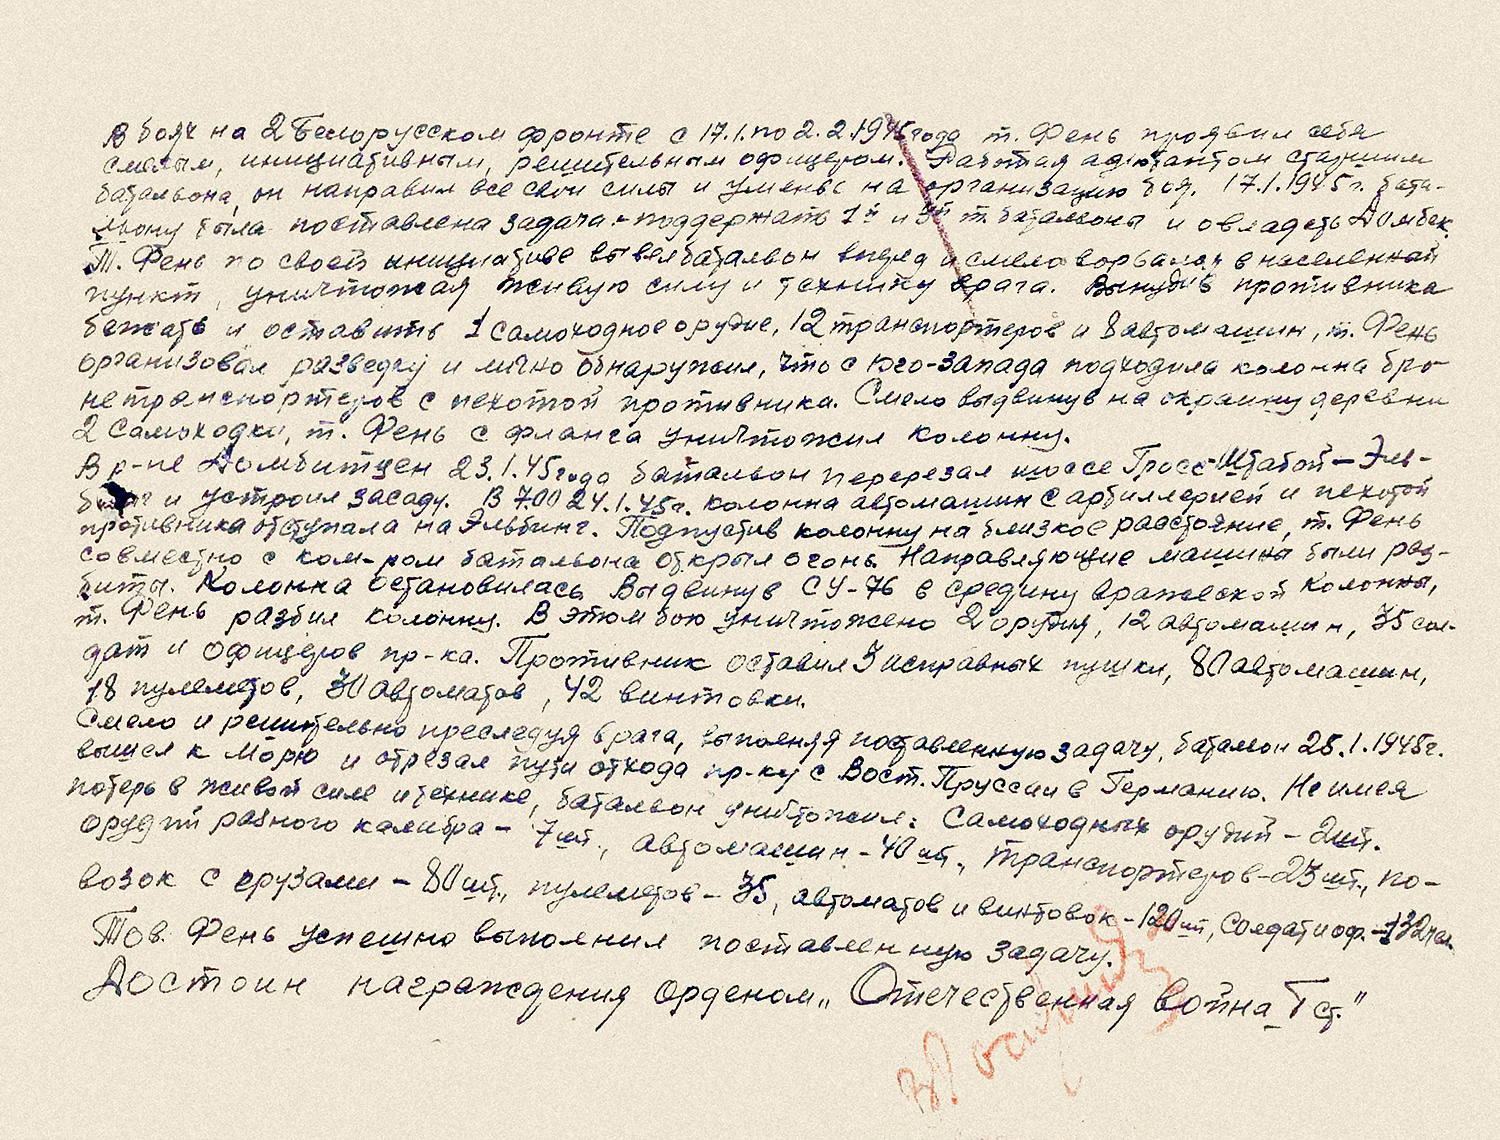 В боях на 2 Белорусском фронте с 17.1. по 2.2.1945 года т. Фень проявил себя
смелым, инициативным, решительным офицером. Работая адютантом старшим
батальона, он направил все свои силы и уменье на организацию боя. 17.1.1945 г. бата-
льону была поставлена задача:- поддержать 1й и 3й т. батальоны и овладеть Домбек.
Т. Фень по своей инициативе вывел батальон вперед и смело ворвался в населенный
пункт, уничтожая живую силу и технику врага. Вынудив противника
бежать и оставить 1 самоходное орудие, 12 транспортеров и 8 автомашин, т. Фень
организовал разведку и лично обнаружил, что с юго-запада подходила колонна бро-
нетранспортеров с пехотой противника. Смело выдвинув на окраину деревни
2 самоходки, т. Фень с фланга уничтожил колонну.
В р-не Домбитцен 23.1.45 года батальон перерезал шоссе Гросс-Штабой – Эль-
бинг и устроил засаду. В 7.00 24.1.45 г. колонна автомашин с артиллерией и пехотой
противника отступала на Эльбинг. Подпустив колонну на близкое расстояние, т. Фень
совместно с ком-ром батальона открыл огонь. Направляющие машины были раз-
биты. Колонна остановилась. Выдвинув СУ-76 в средину вражеской колонны,
т. Фень разбил колонну. В этом бою уничтожено 2 орудия, 12 автомашин, 35 сол-
дат и офицеров пр-ка. Противник оставил 3 исправных пушки, 80 автомашин,
18 пулеметов, 30 автоматов, 42 винтовки.
Смело и решительно преследуя врага, выполняя поставленную задачу, батальон 25.1.1945 г.
вышел к морю и отрезал пути отхода пр-ку с Вост. Пруссии в Германию. Не имея
потерь в живой силе и технике, батальон уничтожил: самоходных орудий – 2 шт.
орудий разного калибра – 7 шт., автомашин – 40 шт., транспортеров – 23 шт., по-
возок с грузами – 80 шт., пулеметов – 35, автоматов и винтовок – 120 шт, солдат и оф. – 132 чел.
Тов. Фень успешно выполнил поставленную задачу.
Достоин награждения орденом „Отечественная война I ст."